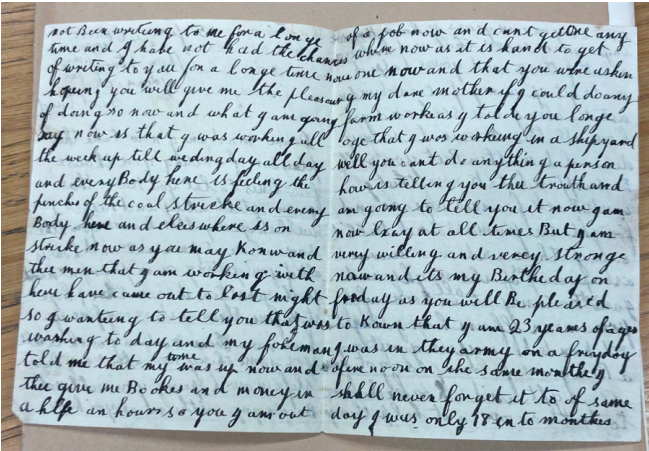 not Been writeing to me for a longe
time and I have not had the chances
of writeing to you for a longe time now
hopeing you will give me the pleasour
of doing so now and what I am going
say now is that I was working all
the week up till wedingday all day
and every Body here is feeling the
pinches of the coal stricke and every
Body here and eleswhere is on
stricke now as you may Konw and
thee men that I am working with
here have came out to last night
so I wanteing to tell you that I was
washing to day and my foreman
told me that my time was up now and
thee give me Bookes and money in
a hlfe an hour so you I am out
of a job now and cant get One any
where now as it is hard to get
one now and that you were asken
my dare mother if I could do any
farm worke as I tolde you longe
age that I was workeing in a shipyard
well you cant do anything a person
how is telling you thee trouth and
am going to tell you it now I am
now lxay at all times But I am
very willing and verey stronge
now and its my Birtheday on
friday as you will Be pleaced
to Kown that I am 23 yeares of ages
I was in they army on a frieday
afore noon on the same monthe I
shall never forget it to of same
day I was only 18 en to monthes